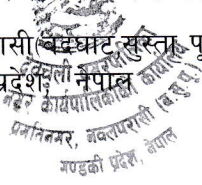 ासी(बर्दघाट सुस्ता पू
प्रदेश, नेपाल
नगर कार्यपालिकाको कार्यालय
प्रगतिनगर, नवलपरासी (ब.सु.पू.)
गण्डकी प्रदेश, नेपाल